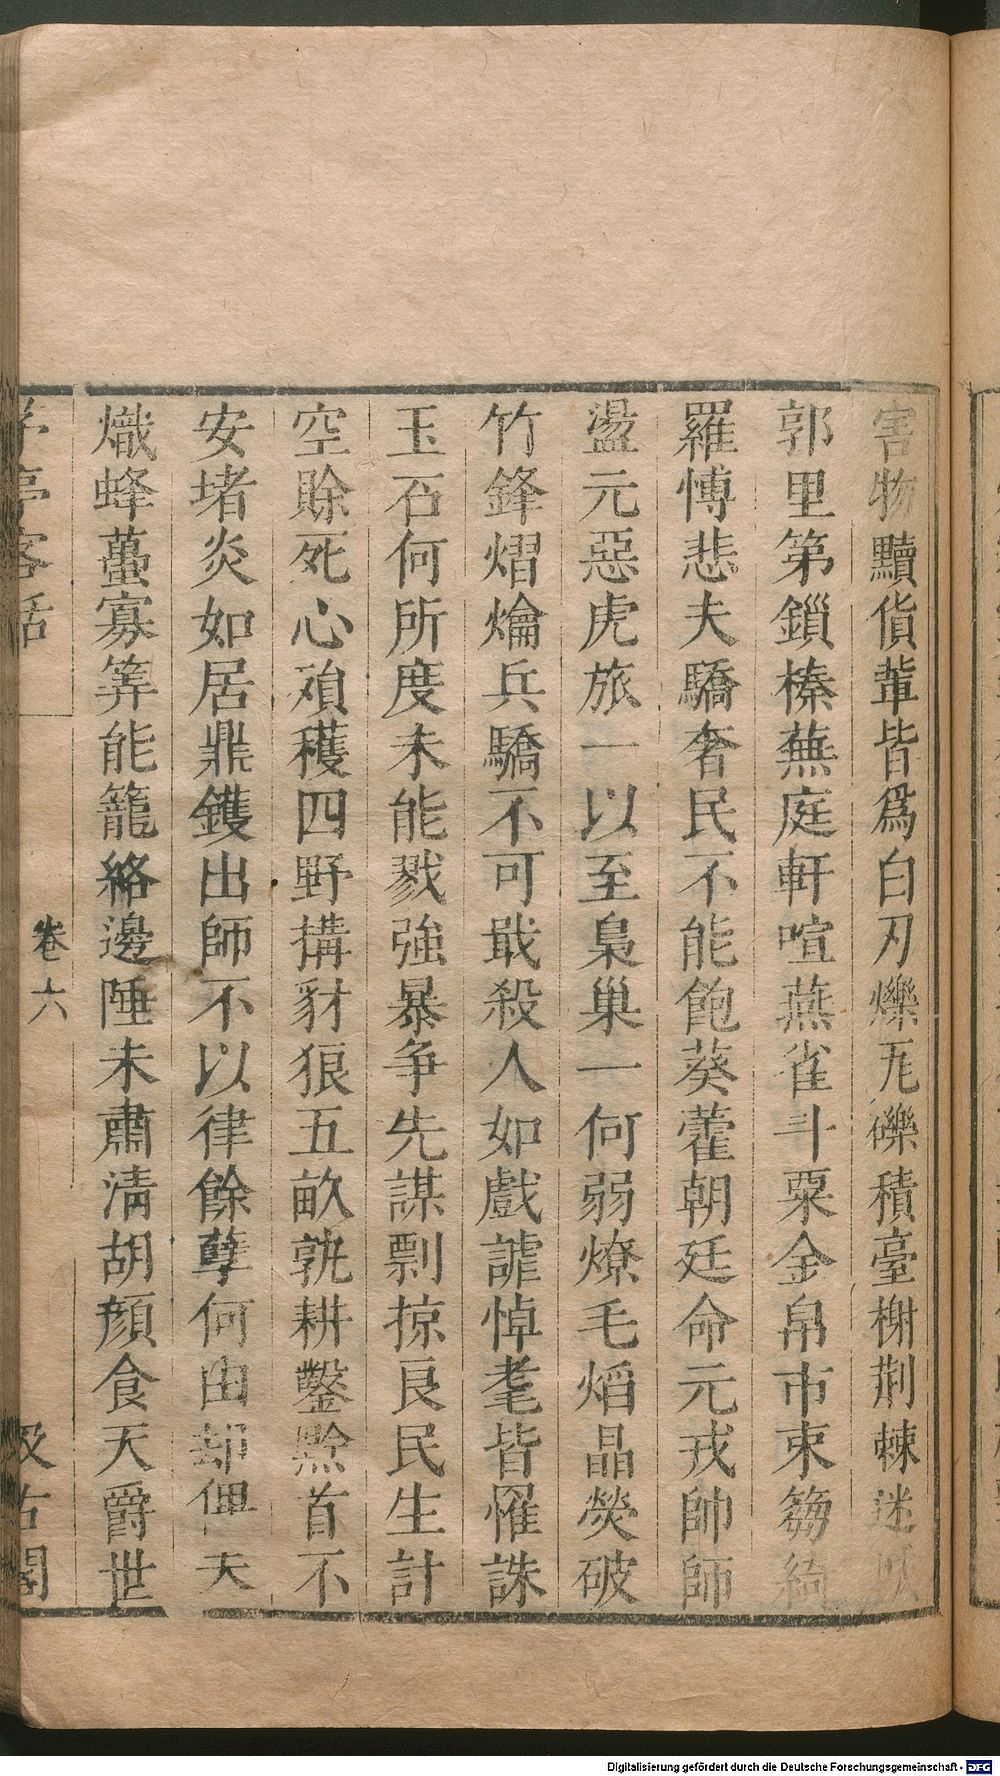 害物黷貨輩皆爲白刃爍瓦礫積臺榭荆棘迷
郭里第鎻榛蕪庭軒喧燕雀斗粟金帛市束芻綺
羅慱悲夫驕奢民不能飽葵藿朝廷命元戎帥師
盪元惡虎旅一以至梟巢一何弱燎毛焰晶熒破
竹鋒熠爚兵驕不可戢殺人如戲謔悼耄皆罹誅
玉石何所度未能戮強暴争先謀剽掠良民生計
空賖死心殞穫四野搆豺狼五畝孰耕鑿黥首不
安堵炎如居鼎鑊出師不以律餘孽何由却俚夫
熾蜂蠆寡筭能籠絡邊陲未肅淸胡顔食天爵世
茅亭客話
卷六
汲古閣
Digitalisierung gefördert durch die Deutsche Forschungsgemeinschaft - DFG